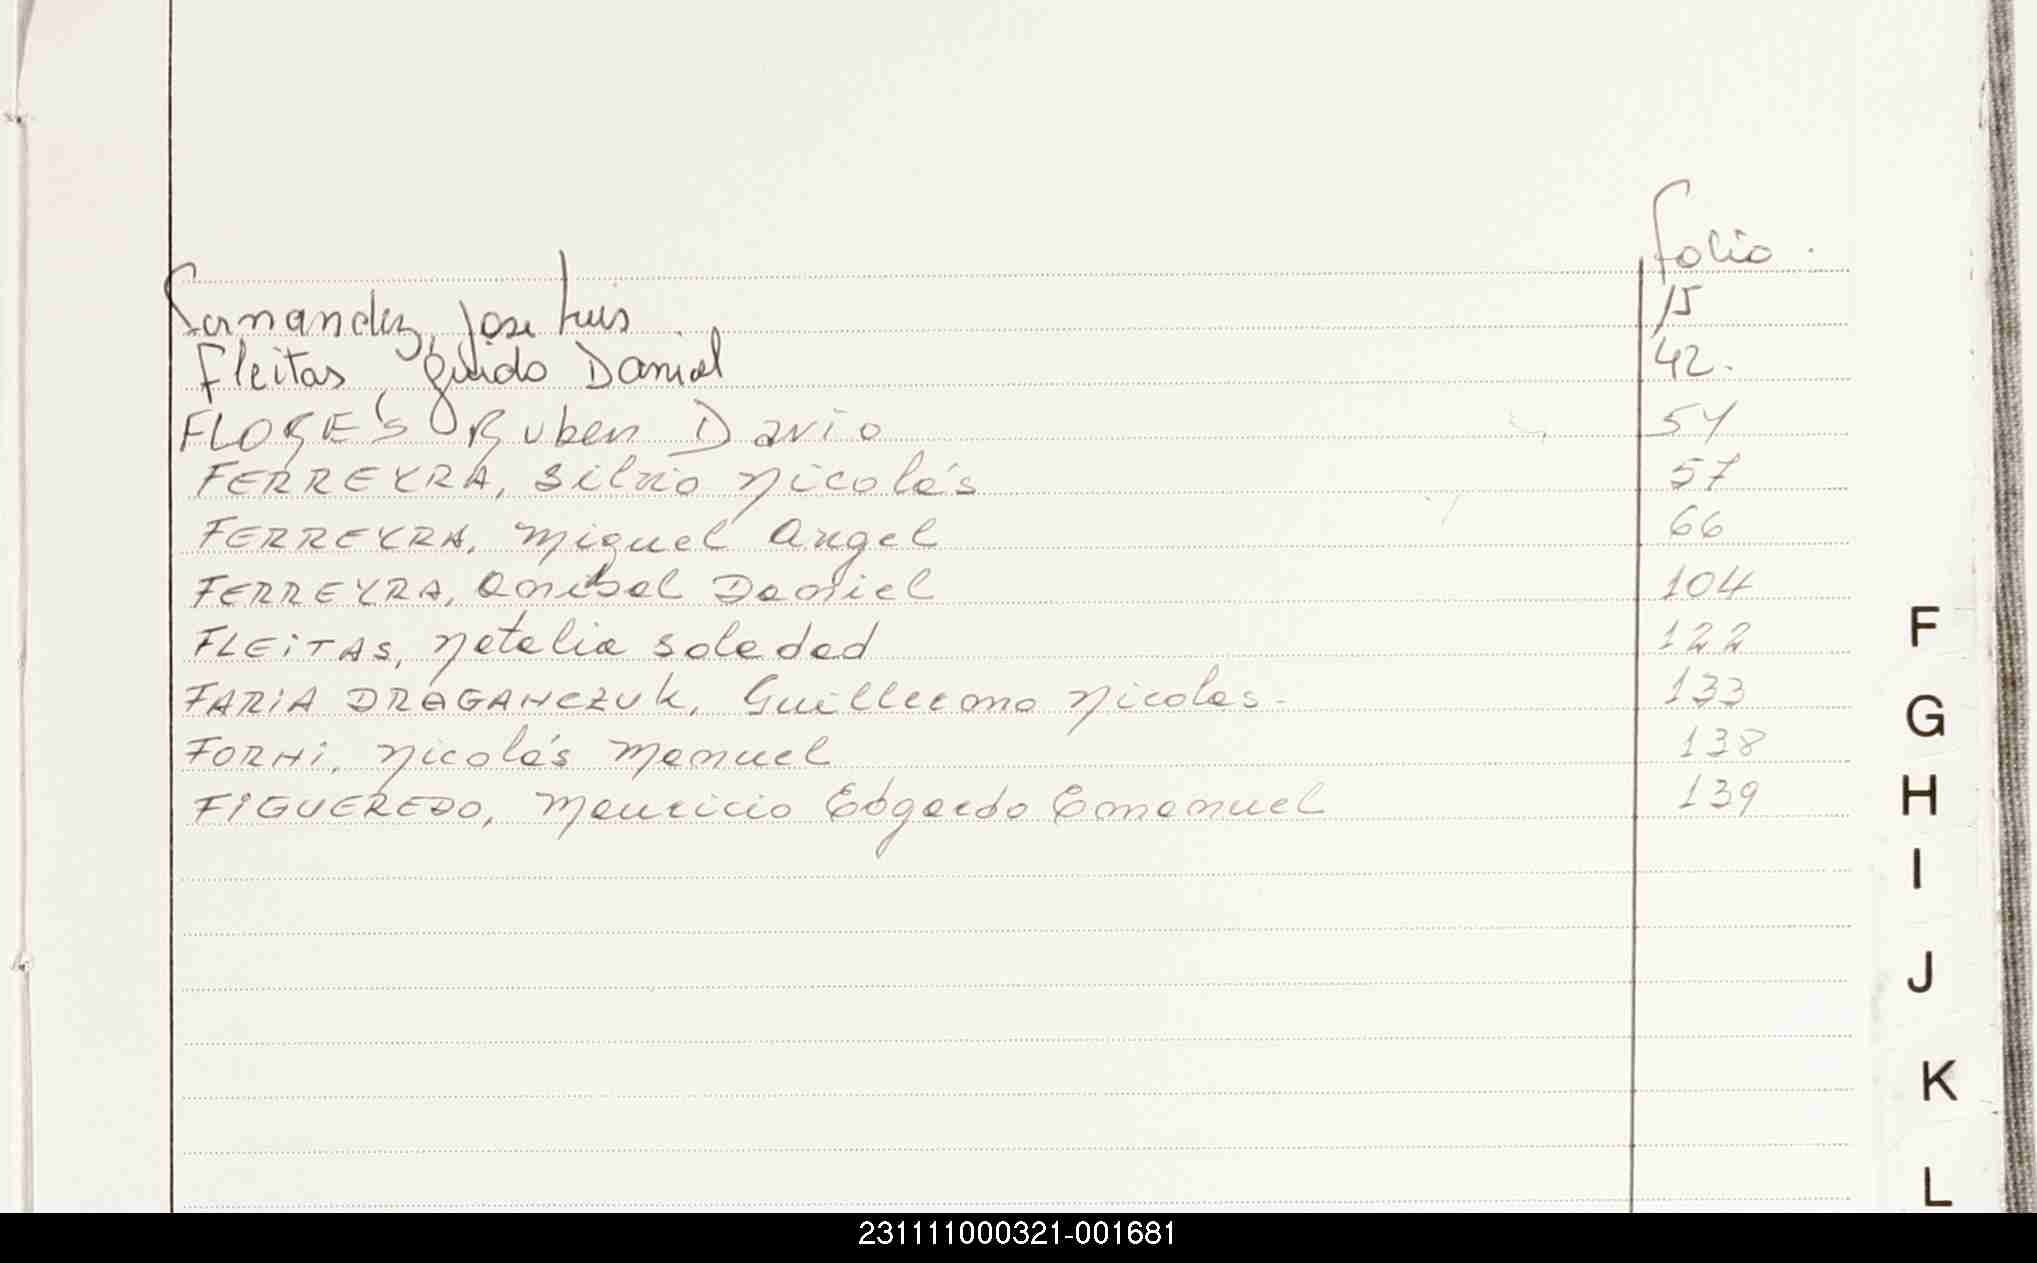 folio.
Fernandez, Jose Luis. 15
Fleitas, Guido Daniel 42.
FLORES Ruben Dario 54
FERREYRA, Silvio Nicolás 57
FERREYRA, Miguel Angel 66
FERREYRA, Anibal Daniel 104
FLEiTAS, Natalia Soledad 122
FARiA DRAGANCZUK, Guillermo Nicolas- 133
FORNi, Nicolás Manuel 138
FiGUEREDO, Mauricio Edgardo Emanuel 139
F
G
H
I
J
K
L
231111000321-001681